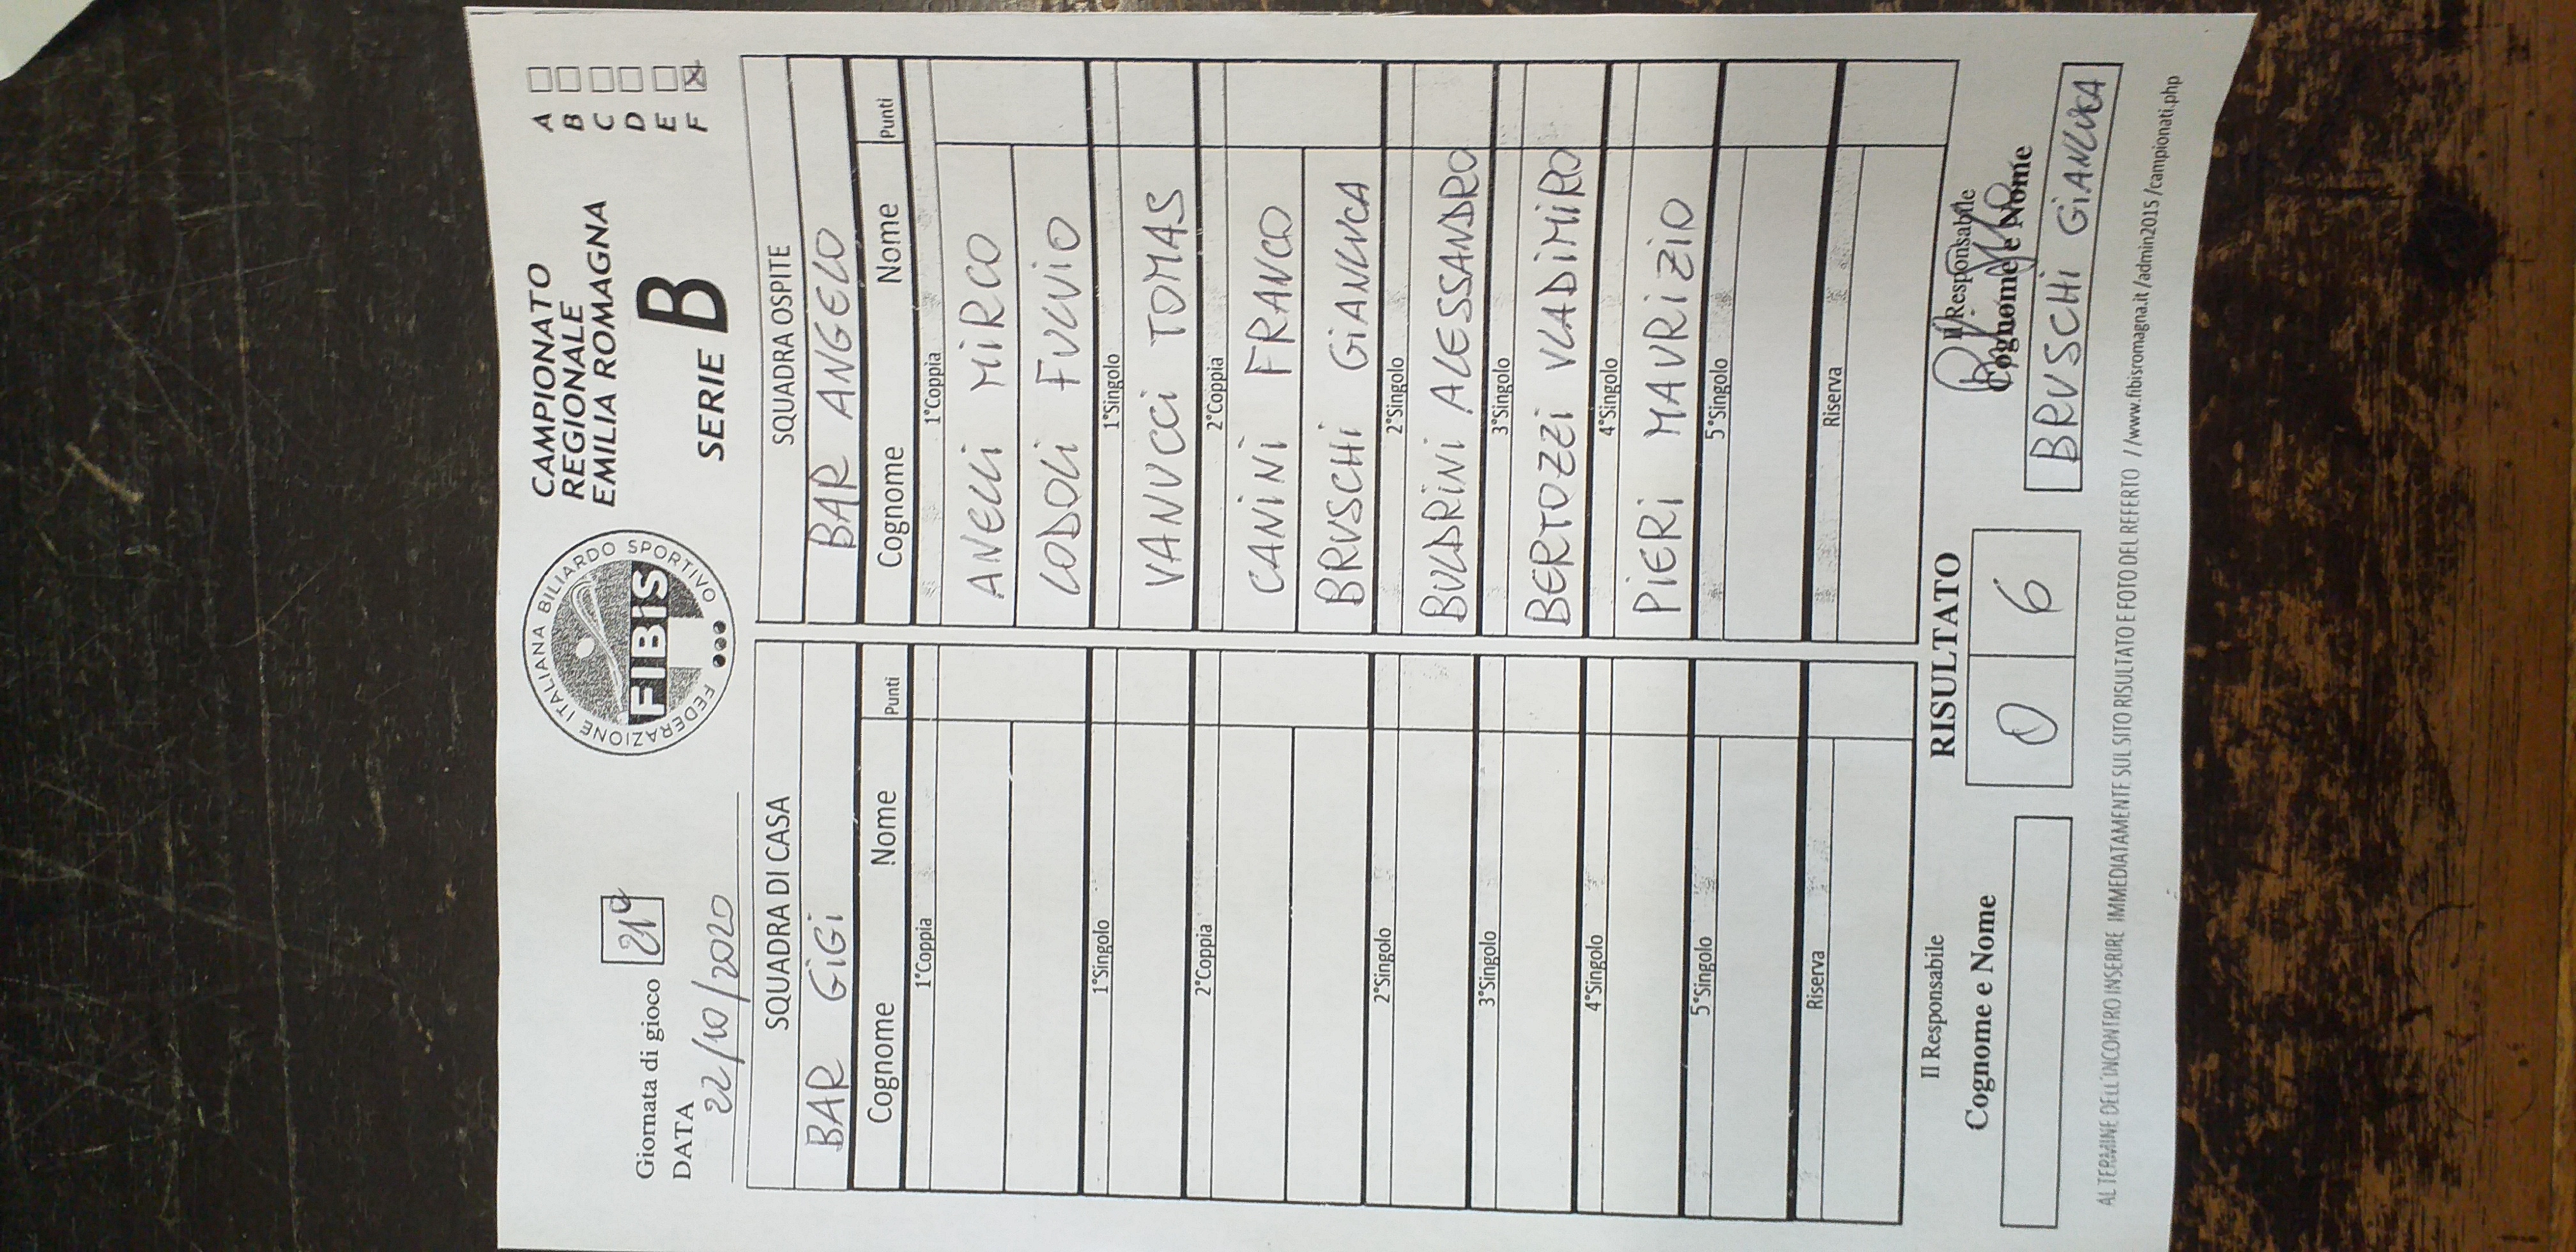 Giornata di gioco 21ª
DATA 22/10/2020
FEDERAZIONE ITALIANA BILIARDO SPORTIVO
FIBiS
CAMPIONATO
REGIONALE
EMILIA ROMAGNA
SERIE B
A
B
C
D
E
F X
SQUADRA DI CASA
BAR GiGi
Cognome Nome Punti
1°Coppia
1°Singolo
2°Coppia
2°Singolo
3°Singolo
4°Singolo
5°Singolo
Riserva
SQUADRA OSPITE
BAR ANGELO
Cognome Nome Punti
1°Coppia
ANELLi MiRCO
LODOLi FULVIO
1°Singolo
VANUCCi TOMAS
2°Coppia
CANiNi FRANCO
BRUSCHi GiANLUCA
2°Singolo
BULDRiNi ALESSANDRO
3°Singolo
BERTOZZi VLADiMiRO
4°Singolo
PiERi MAURiZiO
5°Singolo
Riserva
Il Responsabile
Cognome e Nome
RISULTATO
0 6
Il Responsabile
Cognome e Nome
BRUSCHi GiANLUCA
AL TERMINE DELL'INCONTRO INSERIRE IMMEDIATAMENTE SUL SITO RISULTATO E FOTO DEL REFERTO //www.fibisromagna.it/admin2015/campionati.php